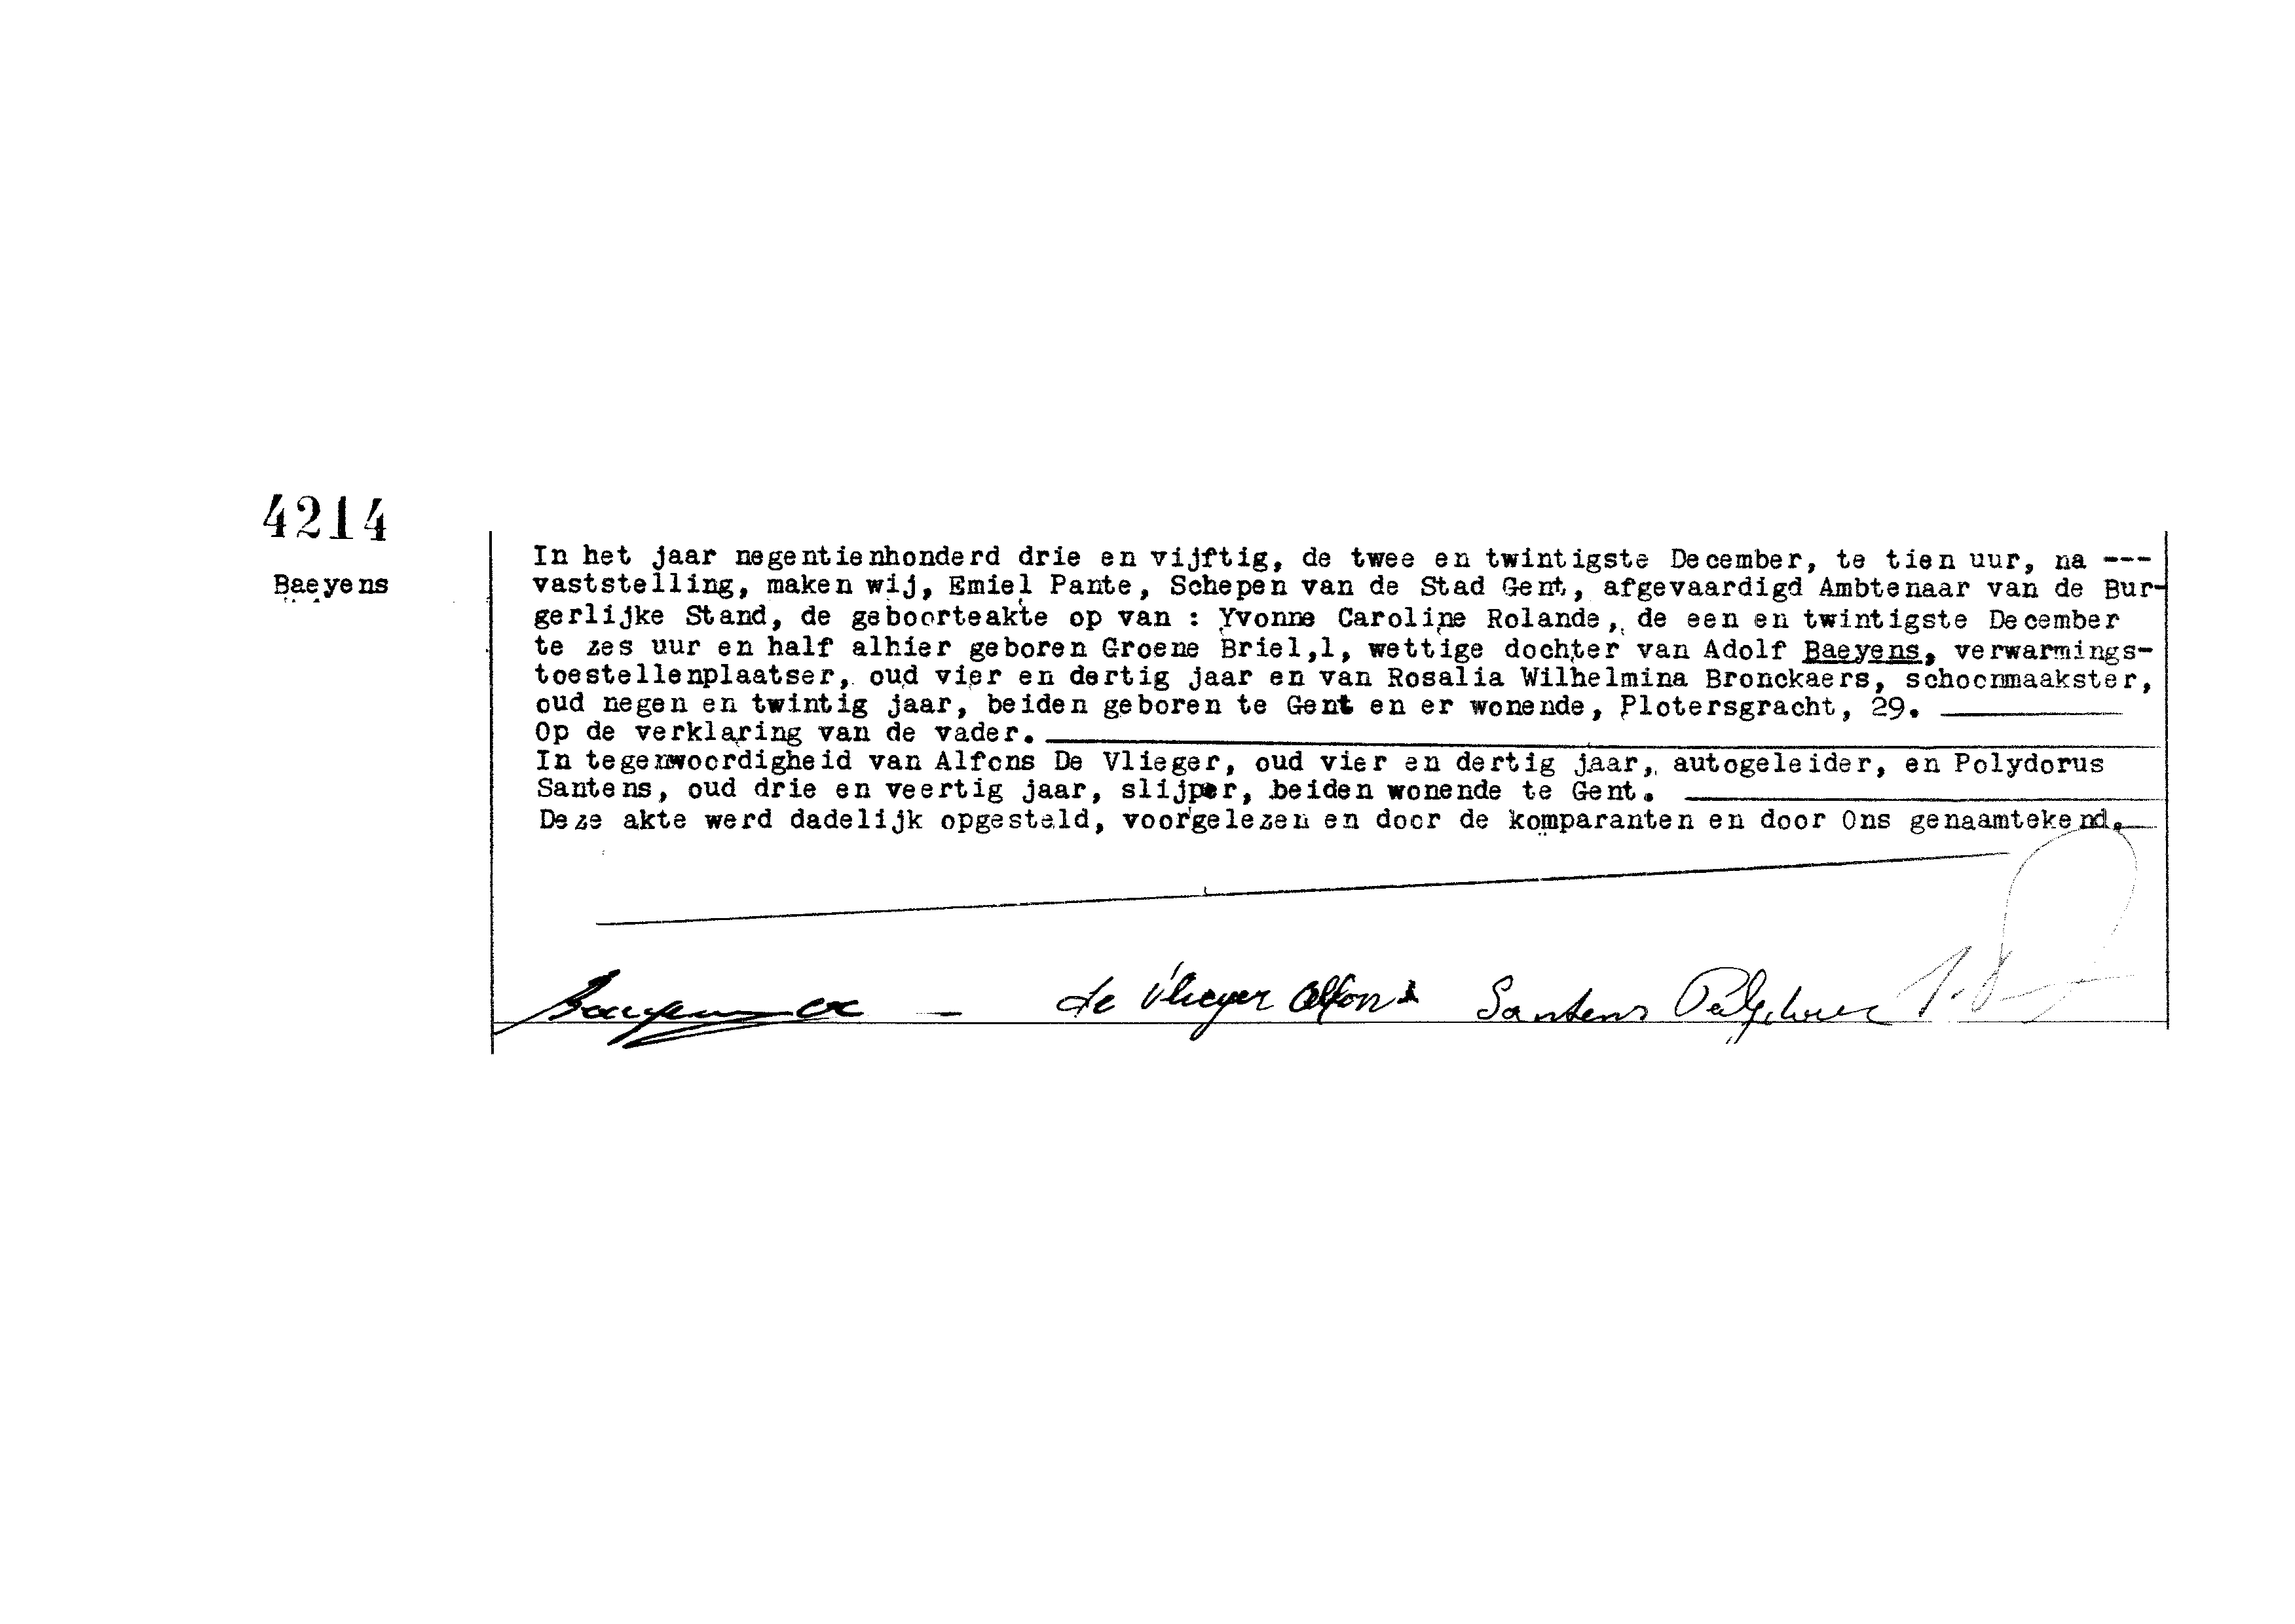 4214
Baeyens
In het jaar negentienhonderd drie en vijftig, de twee en twintigste December, te tien uur, na ---
vaststelling, maken wij, Emiel Pante, Schepen van de Stad Gent, afgevaardigd Ambtenaar van de Bur-
gerlijke Stand, de geboorteakte op van : Yvonne Caroline Rolande, de een en twintigste December
te zes uur en half alhier geboren Groene Briel,1, wettige dochter van Adolf Baeyens, verwarmings-
toestellenplaatser, oud vier en dertig jaar en van Rosalia Wilhelmina Bronckaers, schoonmaakster,
oud negen en twintig jaar, beiden geboren te Gent en er wonende, Plotersgracht, 29.
Op de verklaring van de vader.
In tegenwoordigheid van Alfons De Vlieger, oud vier en dertig jaar, autogeleider, en Polydorus
Santens, oud drie en veertig jaar, slijper, beiden wonende te Gent.
Deze akte werd dadelijk opgesteld, voorgelezen en door de komparanten en door Ons genaamtekend.
de Vlieger Alfons Santens